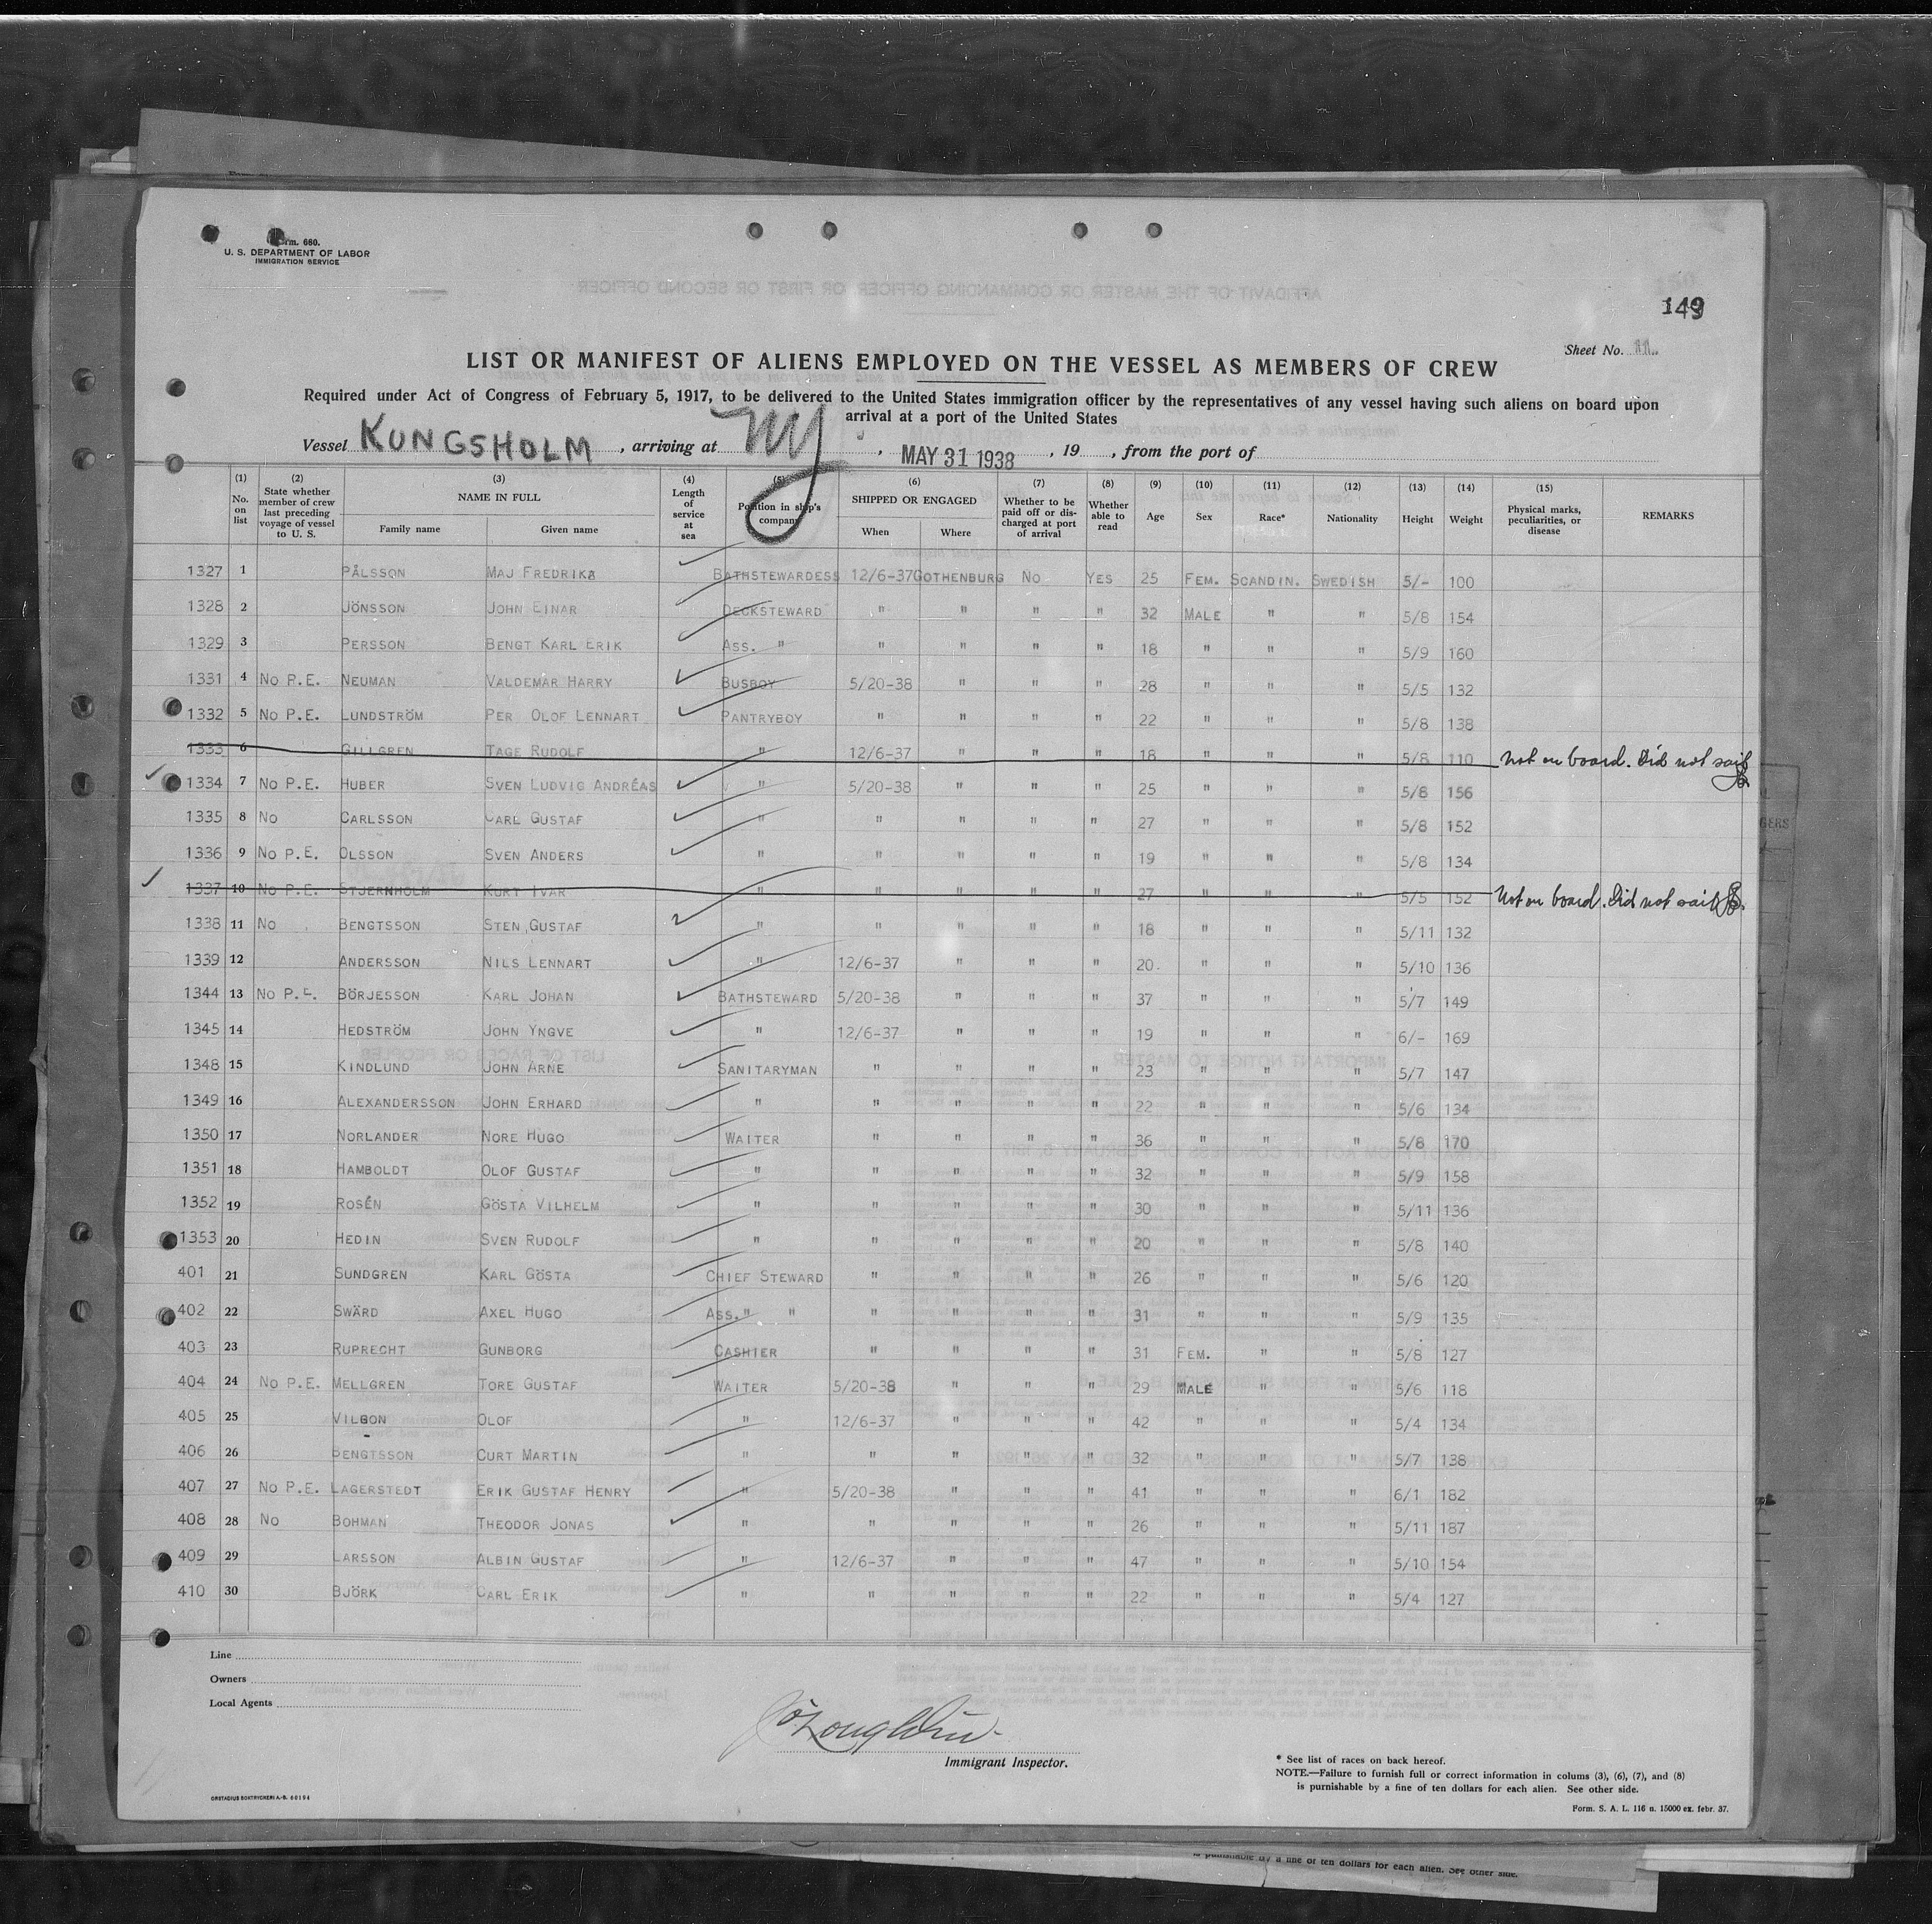 Form. 680.
U. S. DEPARTMENT OF LABOR
IMMIGRATION SERVICE
149
Sheet No. 11
LIST OR MANIFEST OF ALIENS EMPLOYED ON THE VESSEL AS MEMBERS OF CREW
Required under Act of Congress of February 5, 1917, to be delivered to the United States immigration officer by the representatives of any vessel having such aliens on board upon
arrival at a port of the United States
Vessel KUNGSHOLM, arriving at NY, MAY 31 1938, 19, from the port of
(1) No. on list (2) State whether member of crew last preceding voyage of vessel to U. S. (3) NAME IN FULL Family name Given name (4) Length of service at sea (5) Position in ship's company (6) SHIPPED OR ENGAGED When Where (7) Whether to be paid off or discharged at port of arrival (8) Whether able to read (9) Age (10) Sex (11) Race* (12) Nationality (13) Height (14) Weight (15) Physical marks, peculiarities, or disease REMARKS
1327 1 PÅLSSON MAJ FREDRIKA BATHSTEWARDESS 12/6-37 GOTHENBURG NO YES 25 FEM. SCANDIN. SWEDISH 5/- 100
1328 2 JÖNSSON JOHN EINAR DECKSTEWARD " " " " 32 MALE " " 5/8 154
1329 3 PERSSON BENGT KARL ERIK ASS. " " " " " 18 " " " 5/9 160
1331 4 NO P.E. NEUMAN VALDEMAR HARRY BUSBOY 5/20-38 " " " 28 " " " 5/5 132
1332 5 NO P.E. LUNDSTRÖM PER OLOF LENNART PANTRYBOY " " " " 22 " " " 5/8 138
1333 6 GILLGREN TAGE RUDOLF " 12/6-37 " " " 18 " " " 5/8 110 Not on board. Did not sail
1334 7 NO P.E. HUBER SVEN LUDVIG ANDRÉAS " 5/20-38 " " " 25 " " " 5/8 156
1335 8 NO CARLSSON CARL GUSTAF " " " " " 27 " " " 5/8 152
1336 9 NO P.E. OLSSON SVEN ANDERS " " " " " 19 " " " 5/8 134
1337 10 NO P.E. STJERNHOLM KURT IVAR " " " " " 27 " " " 5/5 152 Not on board. Did not sail
1338 11 NO BENGTSSON STEN GUSTAF " " " " " 18 " " " 5/11 132
1339 12 ANDERSSON NILS LENNART " 12/6-37 " " " 20. " " " 5/10 136
1344 13 NO P.E. BÖRJESSON KARL JOHAN BATHSTEWARD 5/20-38 " " " 37 " " " 5/7 149
1345 14 HEDSTRÖM JOHN YNGVE " 12/6-37 " " " 19 " " " 6/- 169
1348 15 KINDLUND JOHN ARNE SANITARYMAN " " " " 23 " " " 5/7 147
1349 16 ALEXANDERSSON JOHN ERHARD " " " " " 22 " " " 5/6 134
1350 17 NORLANDER NORE HUGO WAITER " " " " 36 " " " 5/8 170
1351 18 HAMBOLDT OLOF GUSTAF " " " " " 32 " " " 5/9 158
1352 19 ROSÉN GÖSTA VILHELM " " " " " 30 " " " 5/11 136
1353 20 HEDIN SVEN RUDOLF " " " " " 20 " " " 5/8 140
401 21 SUNDGREN KARL GÖSTA CHIEF STEWARD " " " " 26 " " " 5/6 120
402 22 SWÄRD AXEL HUGO ASS. " " " " " " 31 " " " 5/9 135
403 23 RUPRECHT GUNBORG CASHIER " " " " 31 FEM. " " 5/8 127
404 24 NO P.E. MELLGREN TORE GUSTAF WAITER 5/20-38 " " " 29 MALE " " 5/6 118
405 25 VILGON OLOF " 12/6-37 " " " 42 " " " 5/4 134
406 26 BENGTSSON CURT MARTIN " " " " " 32 " " " 5/7 138
407 27 NO P.E. LAGERSTEDT ERIK GUSTAF HENRY " 5/20-38 " " " 41 " " " 6/1 182
408 28 NO BOHMAN THEODOR JONAS " " " " " 26 " " " 5/11 187
409 29 LARSSON ALBIN GUSTAF " 12/6-37 " " " 47 " " " 5/10 154
410 30 BJÖRK CARL ERIK " " " " " 22 " " " 5/4 127
Line
Owners
Local Agents
Immigrant Inspector.
* See list of races on back hereof.
NOTE.—Failure to furnish full or correct information in colums (3), (6), (7), and (8)
is punishable by a fine of ten dollars for each alien. See other side.
Form. S. A. L. 116 n. 15000 ex. febr. 37.
is punishable by a fine of ten dollars for each alien. See other side.